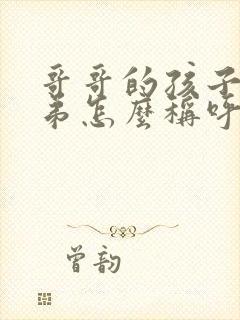 哥哥的孩子
弟怎麼稱呼
曾韵